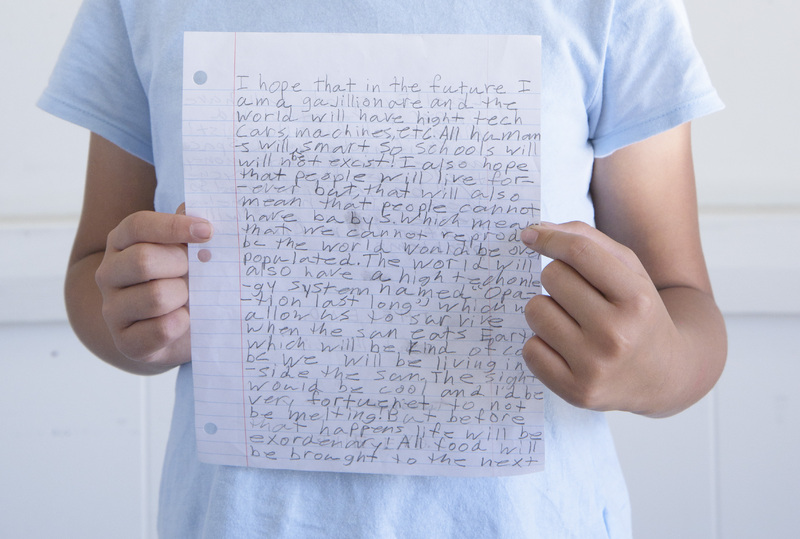 I hope that in the future I
am a gajillionare and the
world will have hight tech
cars, machines, etc. All human
-s will be smart so schools will
will not excist! I also hope
that people will live for-
-ever but, that will also
mean that people cannot
have babys. Which mean
that we cannot reprod
bc the world would be over
populated. The world will
also have a high techonlo
-gy system named "Opa-
-tion last long", which w
allow us to survive
when the sun eats Eart
which will be kind of co
bc we will be living in-
-side the sun. The sight
would be cool and I'd be
very fortuenet to not
be melting. But before
that happens life will be
exordenary! All food will
be brought to the next